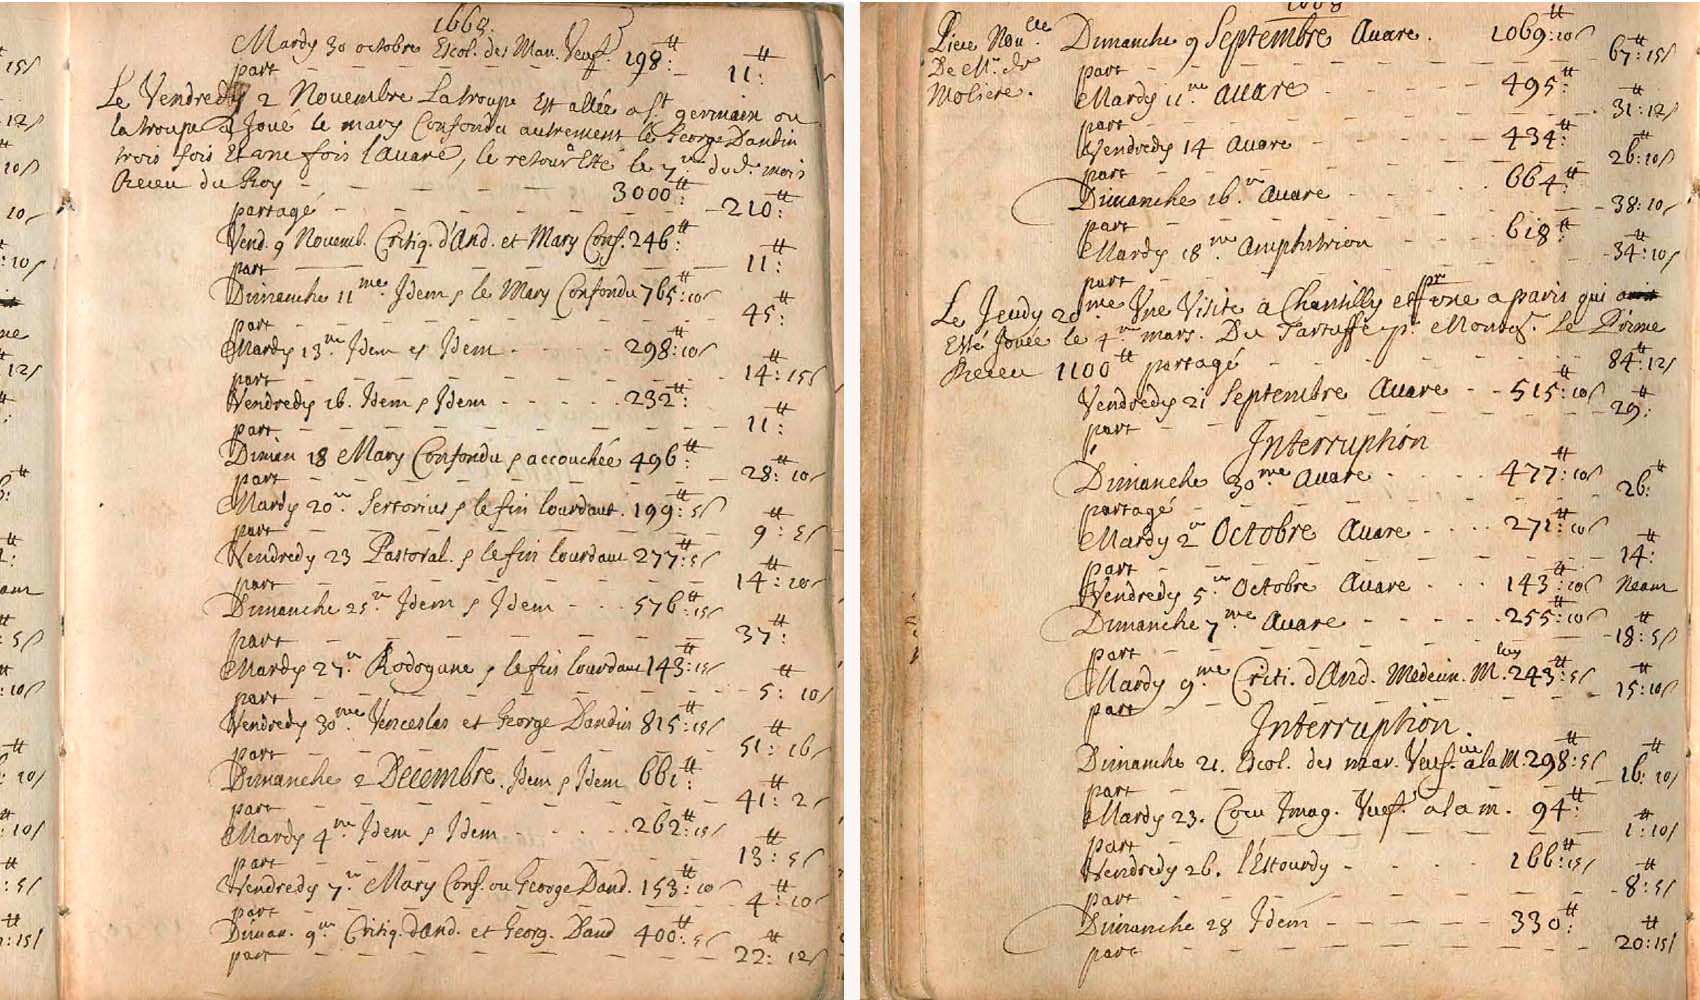 1668.
Mardy 30 octobre Escol. des Mar. Veuf. 198:
part 11:
Le Vendredy 2 Novembre La troupe Est allée a St germain ou
la troupe a Joué le mary Confondu autrement le George Dandin
trois fois Et une fois l'auare, le retour Esté le 7. dud. mois
Receu du Roy 3000:
partagé 210:
Vend. 9 Nouemb. Critiq. d'And. et Mary Conf. 246:
part 11:
Dimanche 11me Idem & le Mary Confondu 765:10s
part 45:
Mardy 13me Idem et Idem 298:10s
part 14:15s
Vendredy 16. Idem & Idem 232:
part 11:
Diman 18 Mary Confondu & accouchée 496:
part 28:10s
Mardy 20me Sertorius & le fin lourdaut. 199:5s
part 9:5s
Vendredy 23 Pastoral. & le fin lourdaut 277:5s
part 14:10s
Dimanche 25me Idem & Idem 576:15s
part 37:
Mardy 27me Rodogune & le fin lourdaut 143:15s
part 5:10s
Vendredy 30me Venceslas et George Dandin 815:15s
part 51:16s
Dimanche 2 Decembre. Idem & Idem 661:
part 41:2s
Mardy 4me Idem & Idem 262:15s
part 13:5s
Vendredy 7me Mary Conf. ou George Dand. 153:10s
part 4:10s
Diman. 9me Critiq. d'And. et Georg. Dand 400:5s
part 22:12s
1668
Piece Nou.lle
De Mr. de
Moliere.
Dimanche 9 Septembre Auare. 1069:10s
part 67:15s
Mardy 11me Auare 495:
part 31:12s
Vendredy 14 Auare 434:
part 26:10s
Dimanche 16me Auare 664:
part 38:10s
Mardy 18me Amphitrion 618:
part 34:10s
Le Jeudy 20me Une Visite a Chantilly pr une a paris qui
Esté Jouée le 4me mars. Du Tartuffe pr. Monsgr. Le Prince
Receu 1100 partagé 84:12s
Vendredy 21 Septembre Auare 515:10s
part 29:
Interruption
Dimanche 30me Auare 477:10s
partagé 26:
Mardy 2me Octobre Auare 271:10s
part 14:
Vendredy 5me Octobre Auare 143:10s Neant
Dimanche 7me Auare 255:10s
part 18:5s
Mardy 9me Criti. d'And. Medecin. M. luy 243:5s
part 15:10s
Interruption.
Dimanche 21. Escol. des mar. Veuf. a la M. 298:5s
part 16:10s
Mardy 23. Cocu Imag. Veuf. a la m. 94:
part 1:10s
Vendredy 26. l'Estourdy 166:15s
part 8:5s
Dimanche 28 Idem 330
part 20:15s